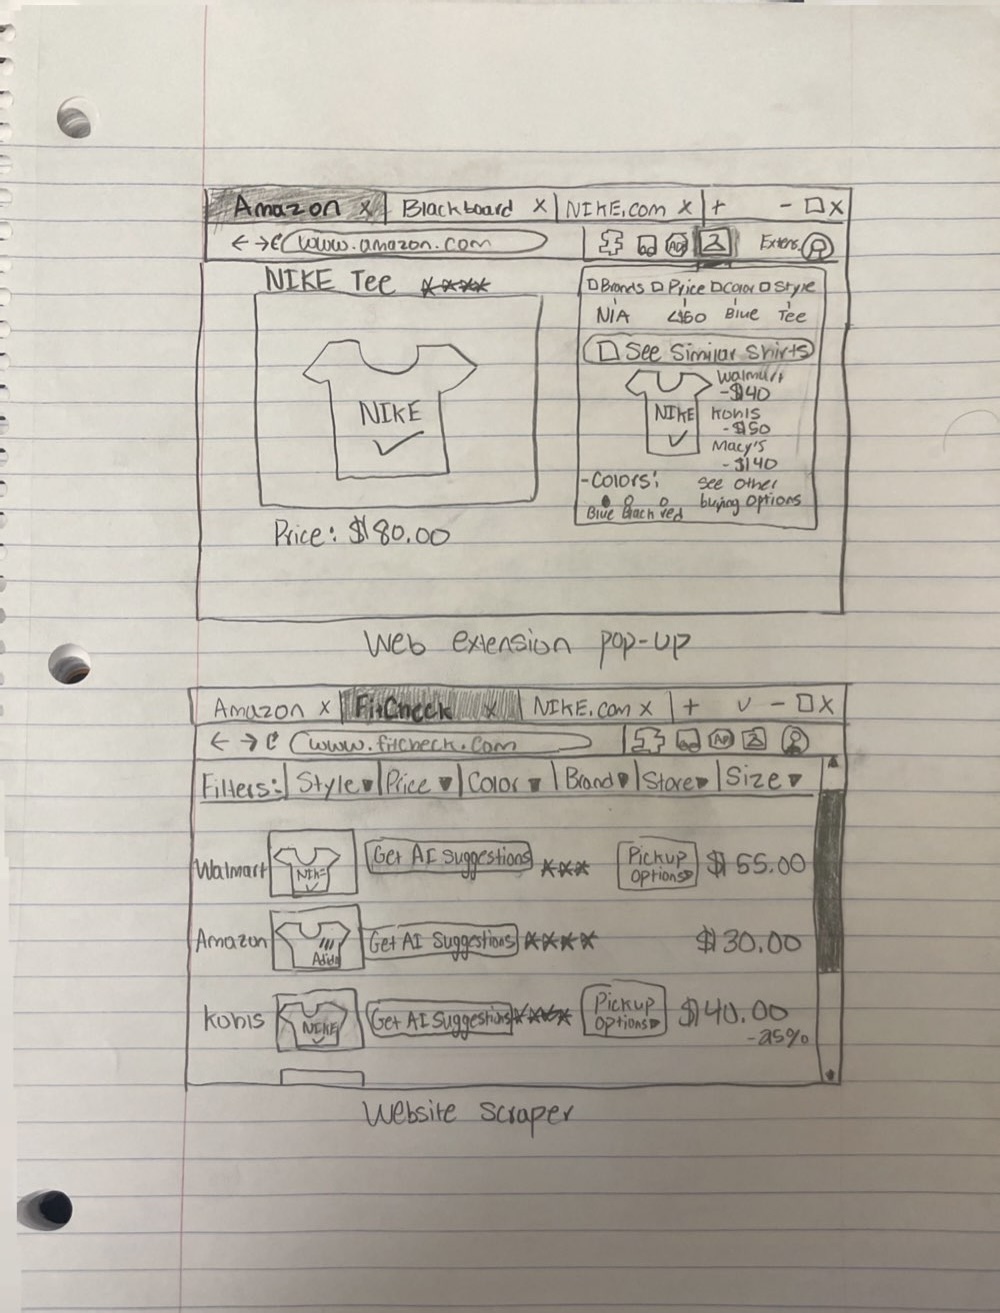 Amazon x Blackboard x NIKE.com x + - x
www.amazon.com Extens.
NIKE Tee
Brands Price Color Style
N/A <$60 Blue Tee
See Similar Shirts
Walmart
-$40
NIKE
NIKE
Kohls
-$50
Macy's
-$140
-Colors:
Blue Black red
see other
buying options
Price: $80.00
Web extension pop-up
Amazon x FitCheck x NIKE.com x + v - x
www.fitcheck.com
Filters: Style Price Color Brand Store Size
Walmart NIKE Get AI Suggestions Pickup Options $55.00
Amazon Adidas Get AI Suggestions $30.00
Kohls NIKE Get AI Suggestions Pickup Options $40.00
-25%
Website scraper